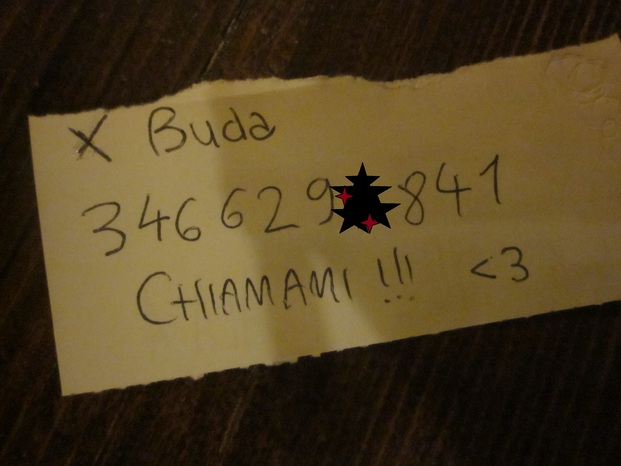 X Buda
346629 841
CHIAMAMI !!! <3